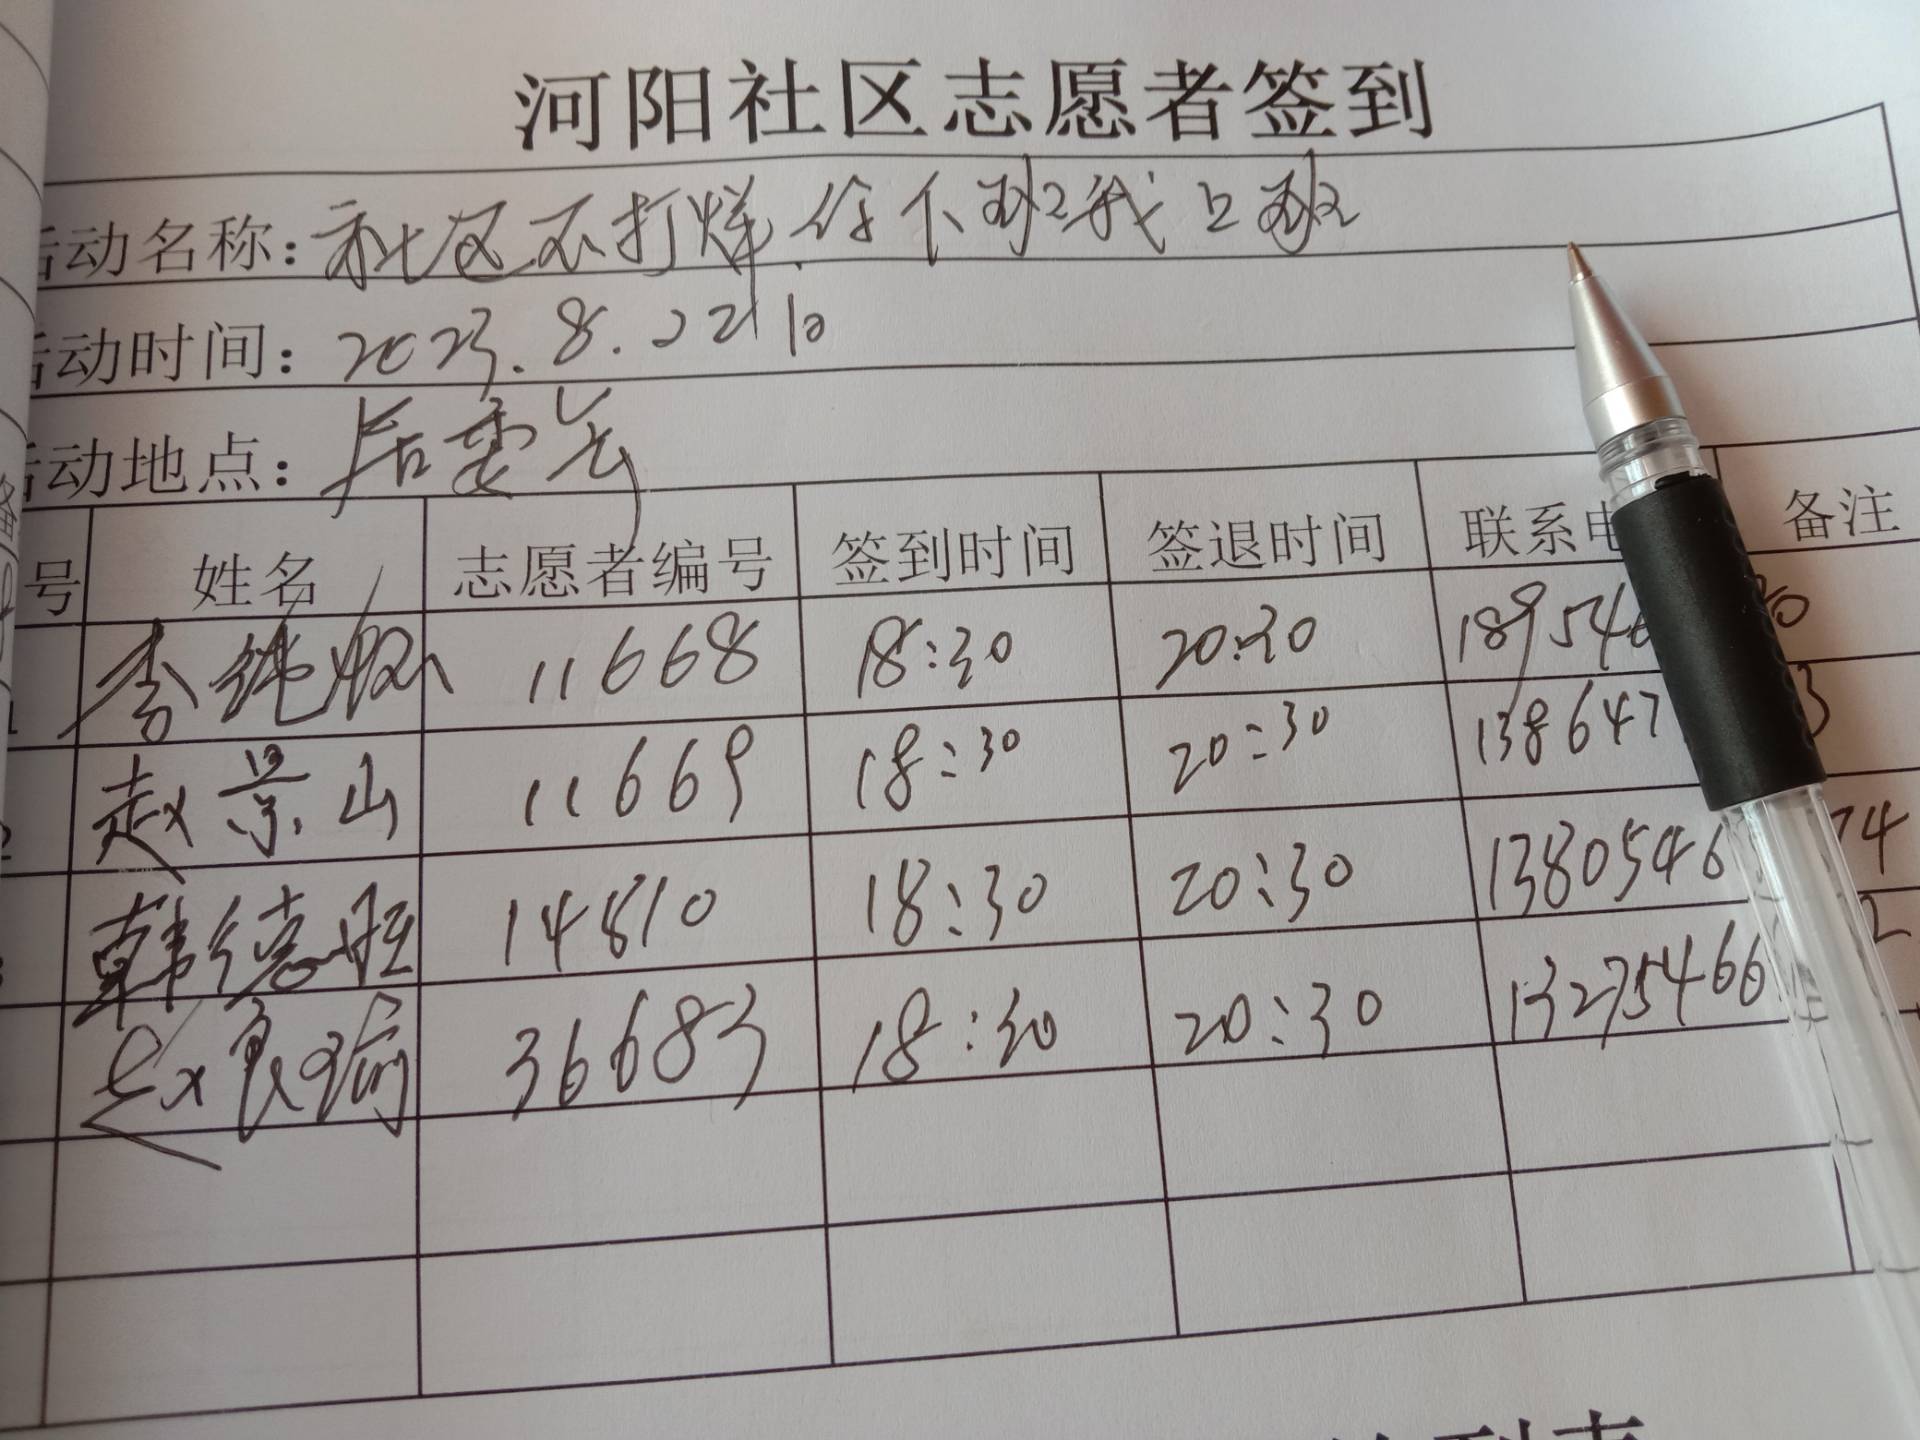 河阳社区志愿者签到
活动名称：社区不打烊.你下班我上班
活动时间：2023.8.22日
活动地点：居委会
号 姓名 志愿者编号 签到时间 签退时间 联系电 备注
1 李纯 11668 18:30 20:30 189546
2 赵景山 11669 18:30 20:30 138647 3
3 韩德旺 14810 18:30 20:30 1380546 74
赵良 36683 18:30 20:30 13275466 2